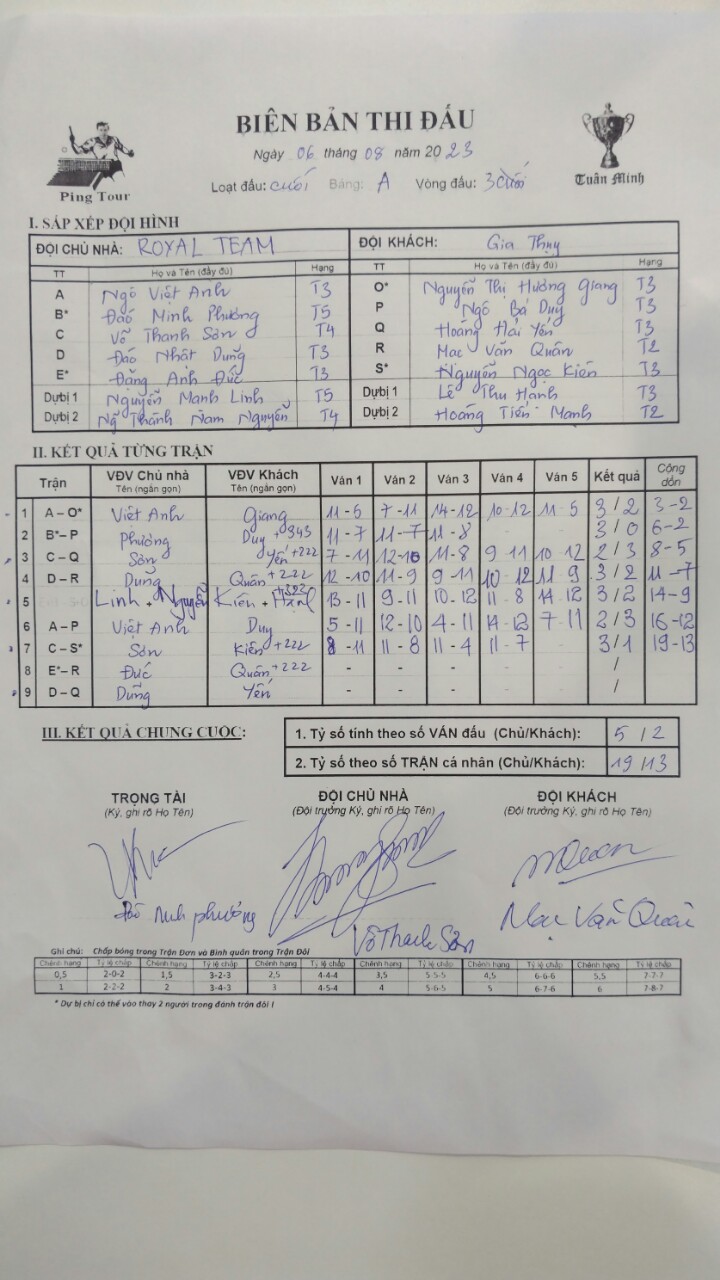 BIÊN BẢN THI ĐẤU
Ping Tour
Tuân Minh
Ngày 06 tháng 08 năm 2023
Loạt đấu: cuối Bảng: A Vòng đấu: 3 cuối
I. SẮP XẾP ĐỘI HÌNH
ĐỘI CHỦ NHÀ: ROYAL TEAM ĐỘI KHÁCH: Gia Thụy
TT Họ và Tên (đầy đủ) Hạng TT Họ và Tên (đầy đủ) Hạng
A Ngô Việt Anh T3 O* Nguyễn Thị Hương Giang T3
B* Đào Minh Phương T5 P Ngô Bá Duy T3
C Võ Thanh Sơn T4 Q Hoàng Hải Yến T3
D Đào Nhật Dũng T3 R Mạc Văn Quân T2
E* Đặng Anh Đức T3 S* Nguyễn Ngọc Kiên T3
Dự bị 1 Nguyễn Mạnh Linh T5 Dự bị 1 Lê Thu Hạnh T3
Dự bị 2 Thành Nam Nguyễn T4 Dự bị 2 Hoàng Tiến Mạnh T2
II. KẾT QUẢ TỪNG TRẬN
Trận VĐV Chủ nhà Tên (ngắn gọn) VĐV Khách Tên (ngắn gọn) Ván 1 Ván 2 Ván 3 Ván 4 Ván 5 Kết quả Cộng dồn
1 A – O* Việt Anh Giang 11-6 7-11 14-12 10-12 11-5 3/2 3-2
2 B* – P Phương Duy +343 11-7 11-7 11-8 - - 3/0 6-2
3 C – Q Sơn Yến +222 7-11 12-10 11-8 9-11 10-12 2/3 8-5
4 D – R Dũng Quân +222 12-10 11-9 9-11 10-12 11-9 3/2 11-7
5 Linh + Nguyễn Kiên + Hạnh 13-11 9-11 10-12 11-8 14-12 3/2 14-9
6 A – P Việt Anh Duy 5-11 12-10 4-11 14-12 7-11 2/3 16-12
7 C – S* Sơn Kiên +222 8-11 11-8 11-4 11-7 3/1 19-13
8 E* – R Đức Quân +222 - - - - - /
9 D – Q Dũng Yến - - - - - /
III. KẾT QUẢ CHUNG CUỘC:
1. Tỷ số tính theo số VÁN đấu (Chủ/Khách): 5 / 2
2. Tỷ số theo số TRẬN cá nhân (Chủ/Khách): 19 / 13
TRỌNG TÀI ĐỘI CHỦ NHÀ ĐỘI KHÁCH
(Ký, ghi rõ Họ Tên) (Đội trưởng Ký, ghi rõ Họ Tên) (Đội trưởng Ký, ghi rõ Họ Tên)
phương Võ Thanh Sơn Mạc Văn Quân
Ghi chú: Chấp bóng trong Trận Đơn và Bình quân trong Trận Đôi
Chênh hạng Tỷ lệ chấp Chênh hạng Tỷ lệ chấp Chênh hạng Tỷ lệ chấp Chênh hạng Tỷ lệ chấp Chênh hạng Tỷ lệ chấp Chênh hạng Tỷ lệ chấp
0,5 2-0-2 1,5 3-2-3 2,5 4-4-4 3,5 5-5-5 4,5 6-6-6 5,5 7-7-7
1 2-2-2 2 3-4-3 3 4-5-4 4 5-6-5 5 6-7-6 6 7-8-7
* Dự bị chỉ có thể vào thay 2 người trong đánh trận đôi !